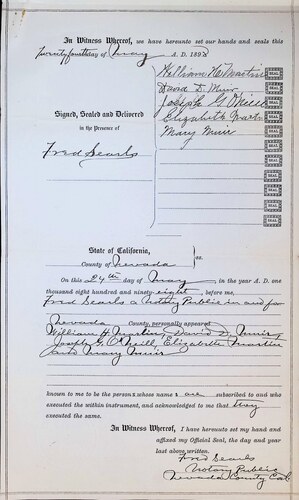 In Witness Whereof, we have hereunto set our hands and seals this
Twenty fourth day of May A. D. 1898
William H. Martin SEAL
David D. Muir SEAL
Joseph G. O'Neill SEAL
Signed, Sealed and Delivered Elizabeth Martin SEAL
in the Presence of Mary Muir SEAL
Fred Searls SEAL
SEAL
SEAL
SEAL
SEAL
State of California,
County of Nevada } ss.
On this 24th day of May in the year A. D. one
thousand eight hundred and ninety-eight before me,
Fred Searls a Notary Public in and for
Nevada County, personally appeared
William H. Martin, David D. Muir,
Joseph G. O'Neill, Elizabeth Martin
and Mary Muir
known to me to be the persons whose names are subscribed to and who
executed the within instrument, and acknowledged to me that they
executed the same.
In Witness Whereof, I have hereunto set my hand and
affixed my Official Seal, the day and year
last above written.
Fred Searls
Notary Public
Nevada County Cal